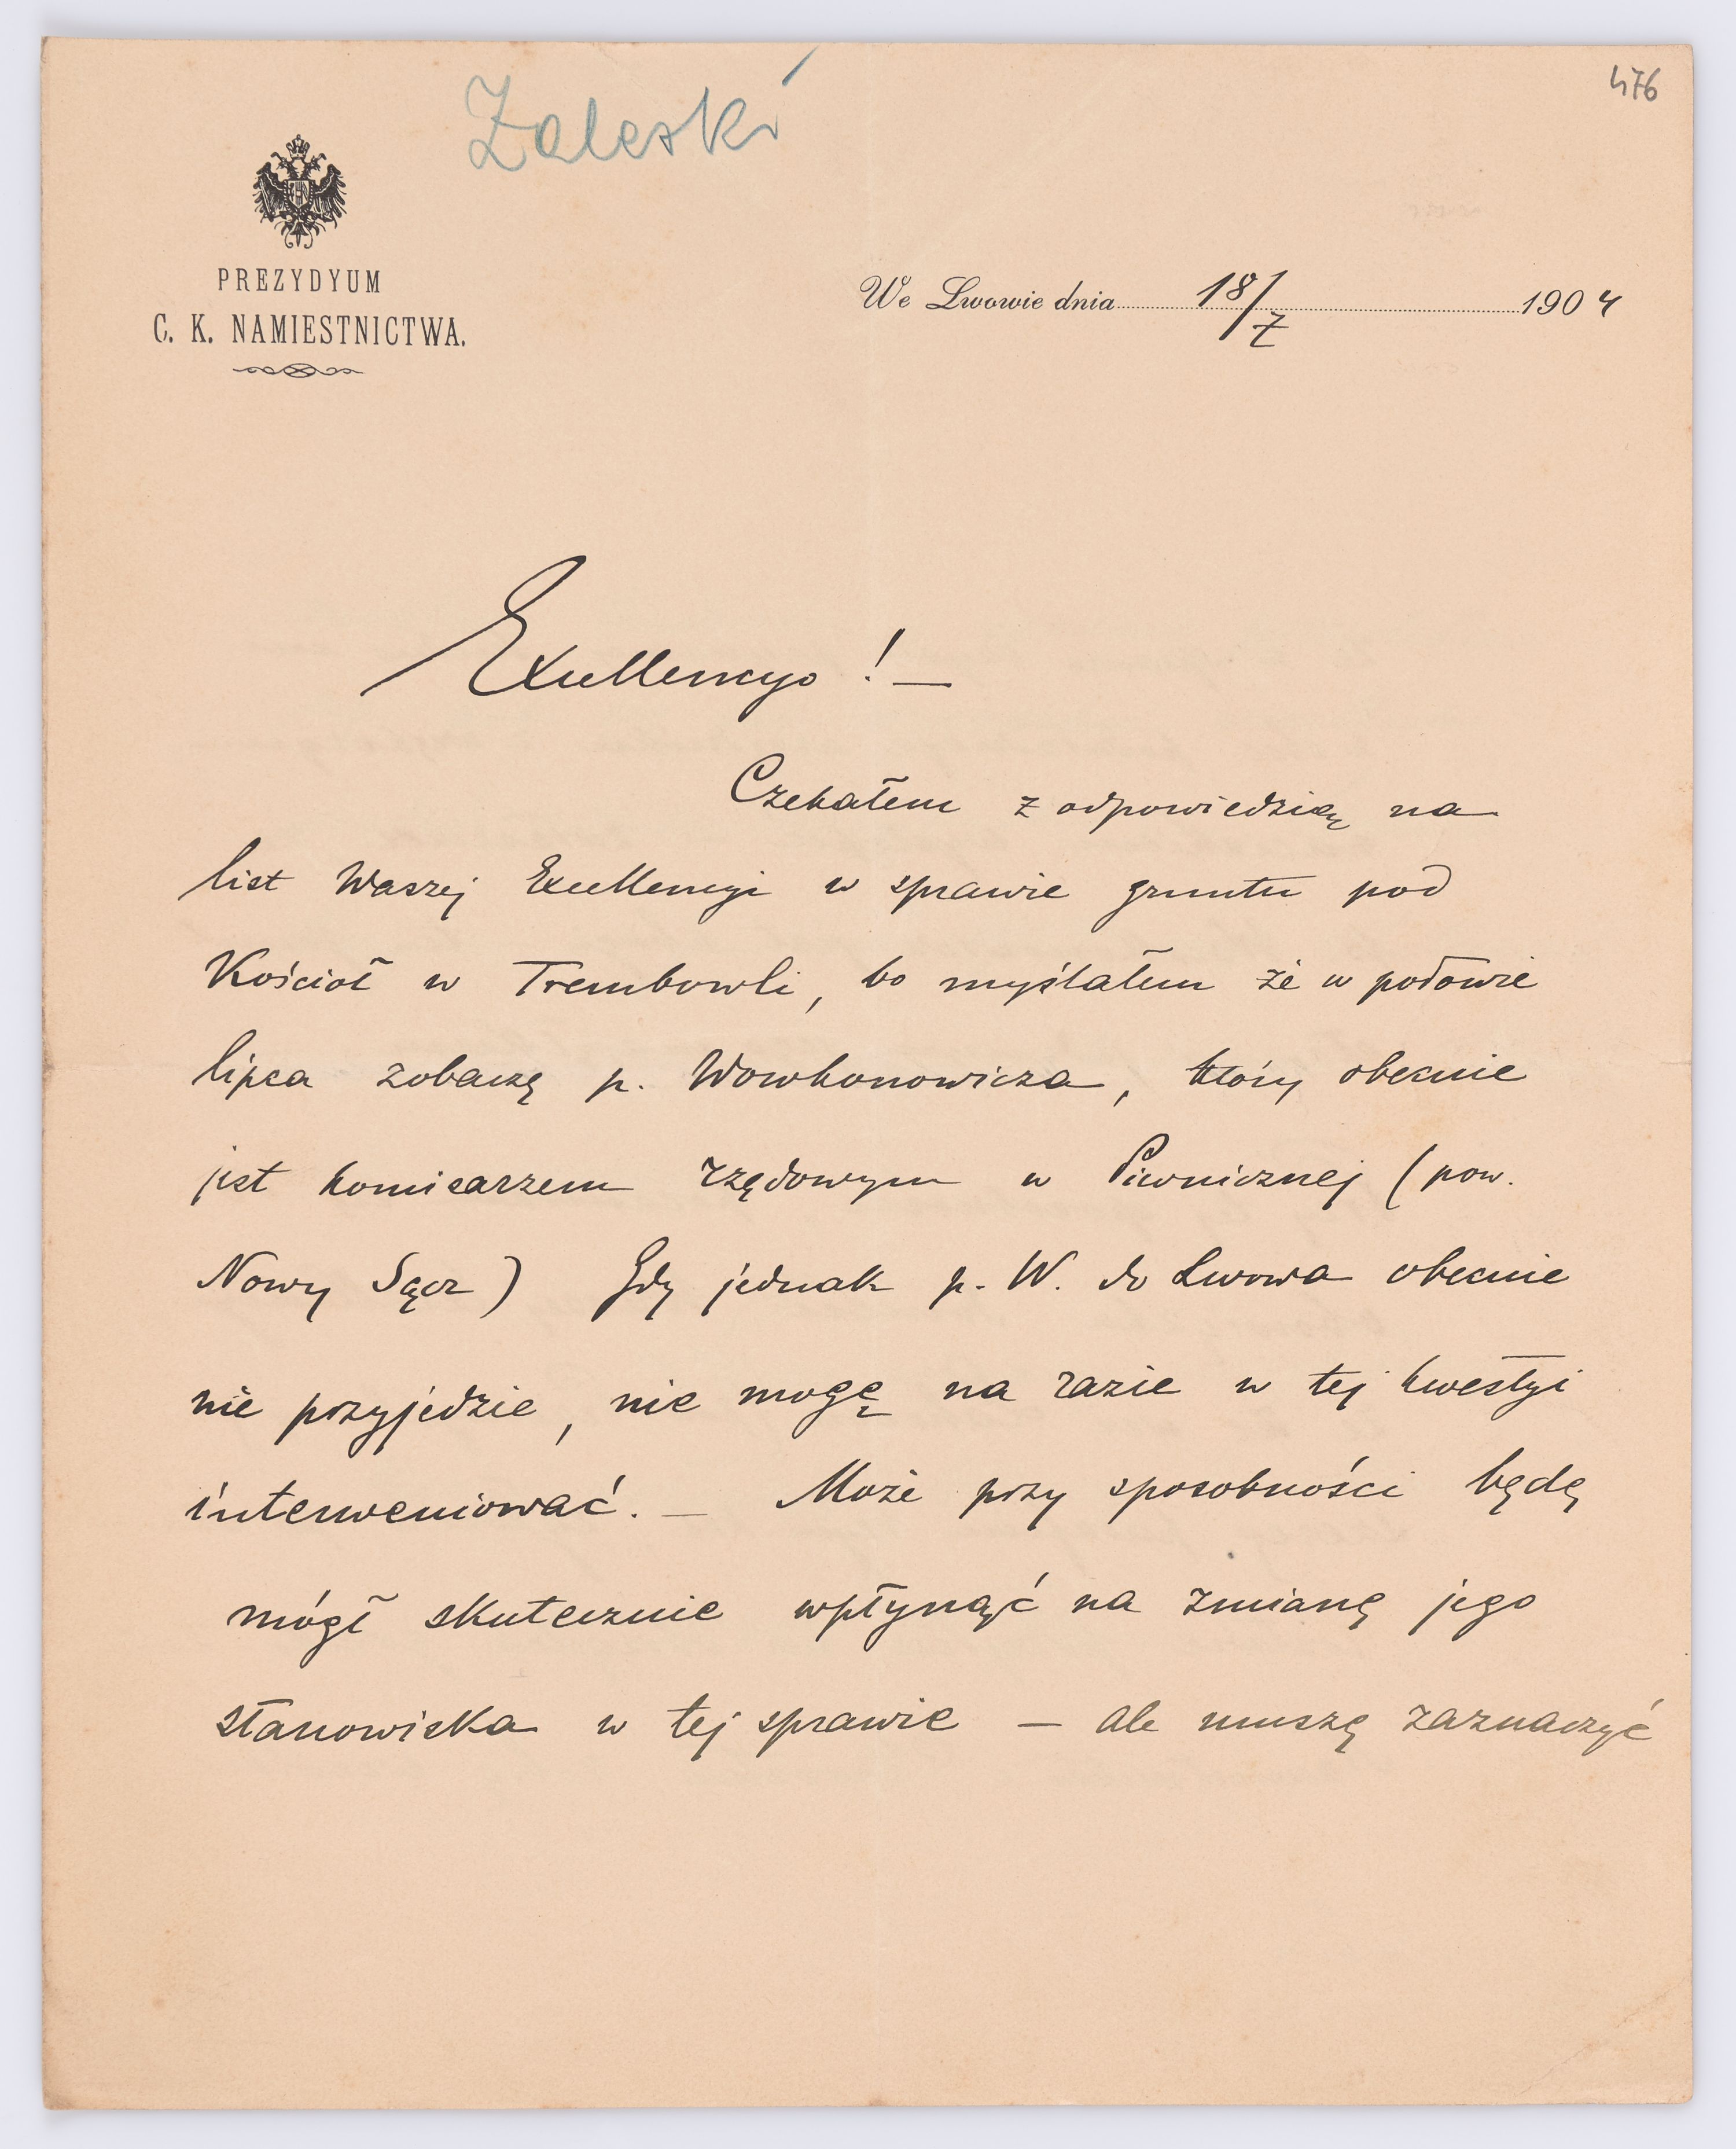 476
Zaleski
PREZYDYUM
C. K. NAMIESTNICTWA.
We Lwowie dnia 18/7 1904
Excellencyo! —
Czekałem z odpowiedzią na
list Waszej Excellencyi w sprawie gruntu pod
Kościół w Trembowli, bo myślałem że w połowie
lipca zobaczę p. Wowkonowicza, który obecnie
jest komisarzem rządowym w Piwnicznej (pow.
Nowy Sącz) Gdy jednak p. W. do Lwowa obecnie
nie przyjedzie, nie mogę na razie w tej kwestyi
interweniować. — Może przy sposobności będę
mógł skutecznie wpłynąć na zmianę jego
stanowiska w tej sprawie — ale muszę zaznaczyć